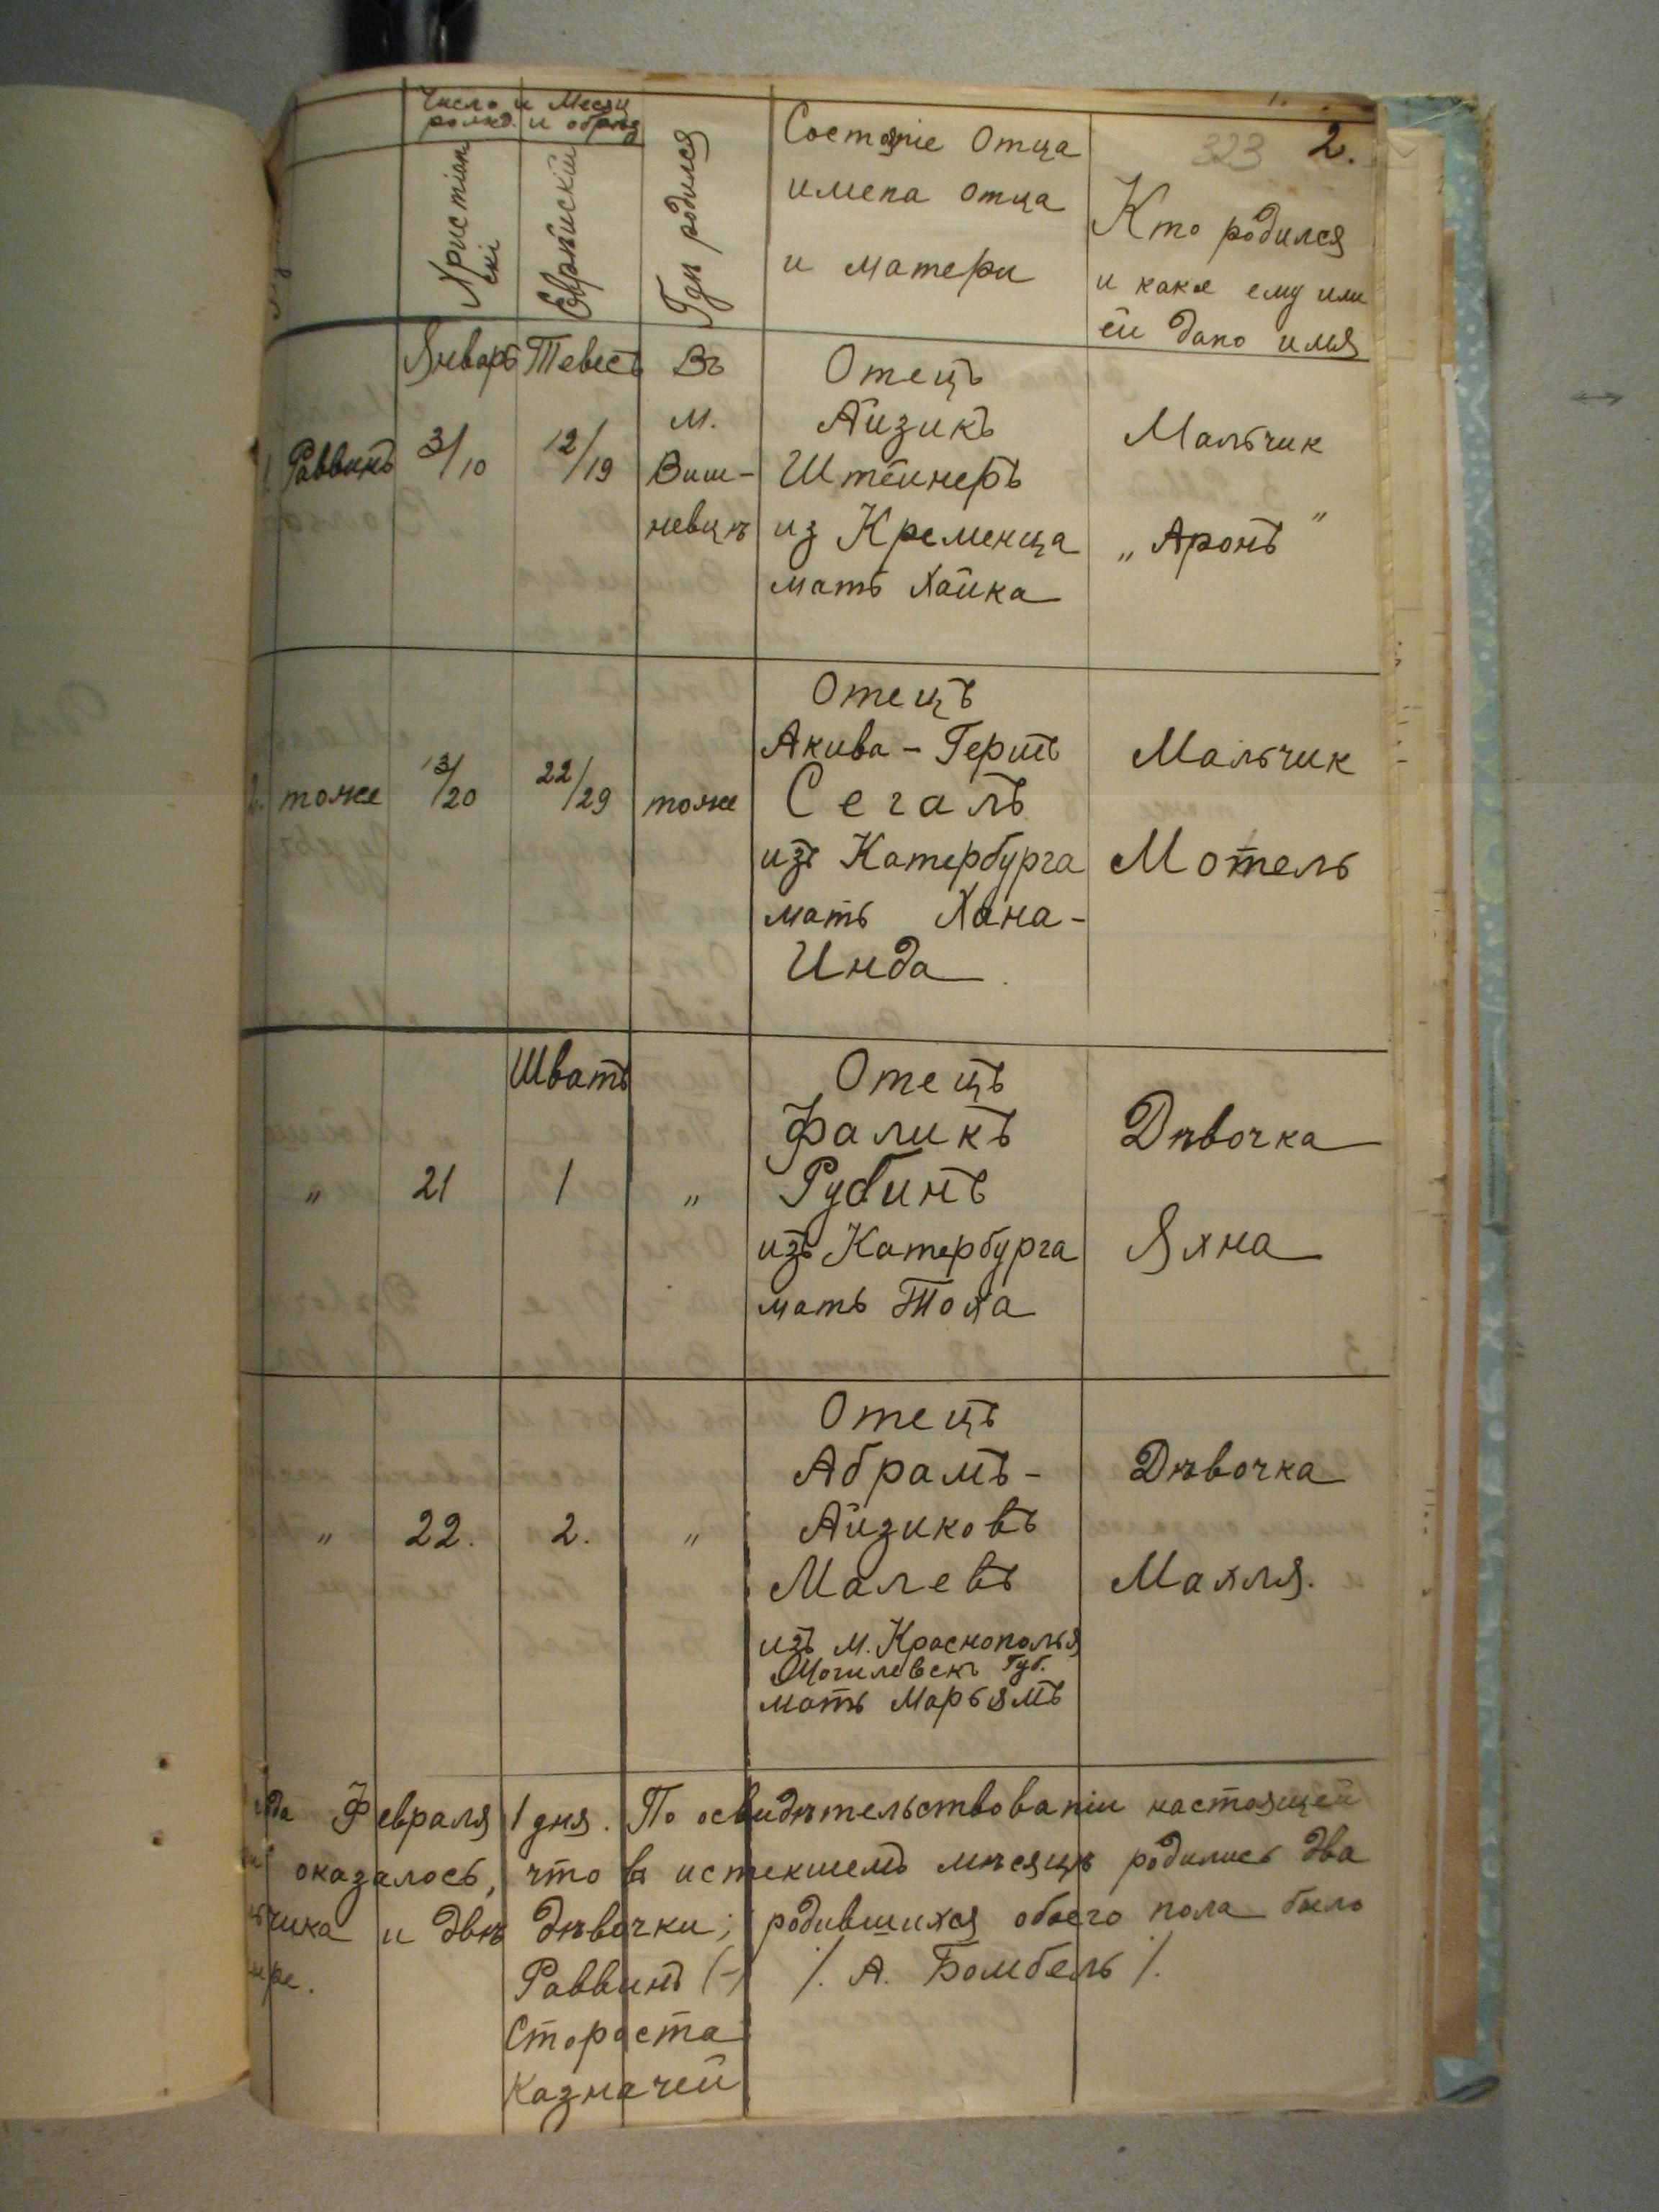 323 2.
Число и Месяц
рожд. и обряд
Христіан
скі
Еврѣйскій
Гдѣ родился
Состояніе Отца
имена отца
и матери
Кто родился
и какое ему или
ей дано имя
Январь Тевесъ Въ
м.
Виш-
невцѣ
Раввинъ 3/10 12/19
Отецъ
Айзикъ
Штейнеръ
из Кременца
мать Хайка
Мальчик
„Аронъ"
2. тоже 13/20 22/29 тоже
Отецъ
Акива - Гершъ
Сегалъ
изъ Катербурга
мать Хана-
Инда
Мальчик
Мотель
Шватъ
„ 21 1 „
Отецъ
Фаликъ
Рубинъ
изъ Катербурга
мать Тоха
Дѣвочка
Яхна
„ 22. 2. „
Отецъ
Абрамъ-
Айзиковъ
Малевъ
изъ м. Краснополья
Могилевскъ Губ.
мать Марьямъ
Дѣвочка
Махля.
да Февраля 1 дня. По освидѣтельствованіи настоящей
оказалось, что в истекшемъ мѣсяцѣ родились два
чика и двѣ дѣвочки; родившихся обоего пола было
ре.
Раввинъ (-) /. А. Бомбель /.
Староста
Казначей